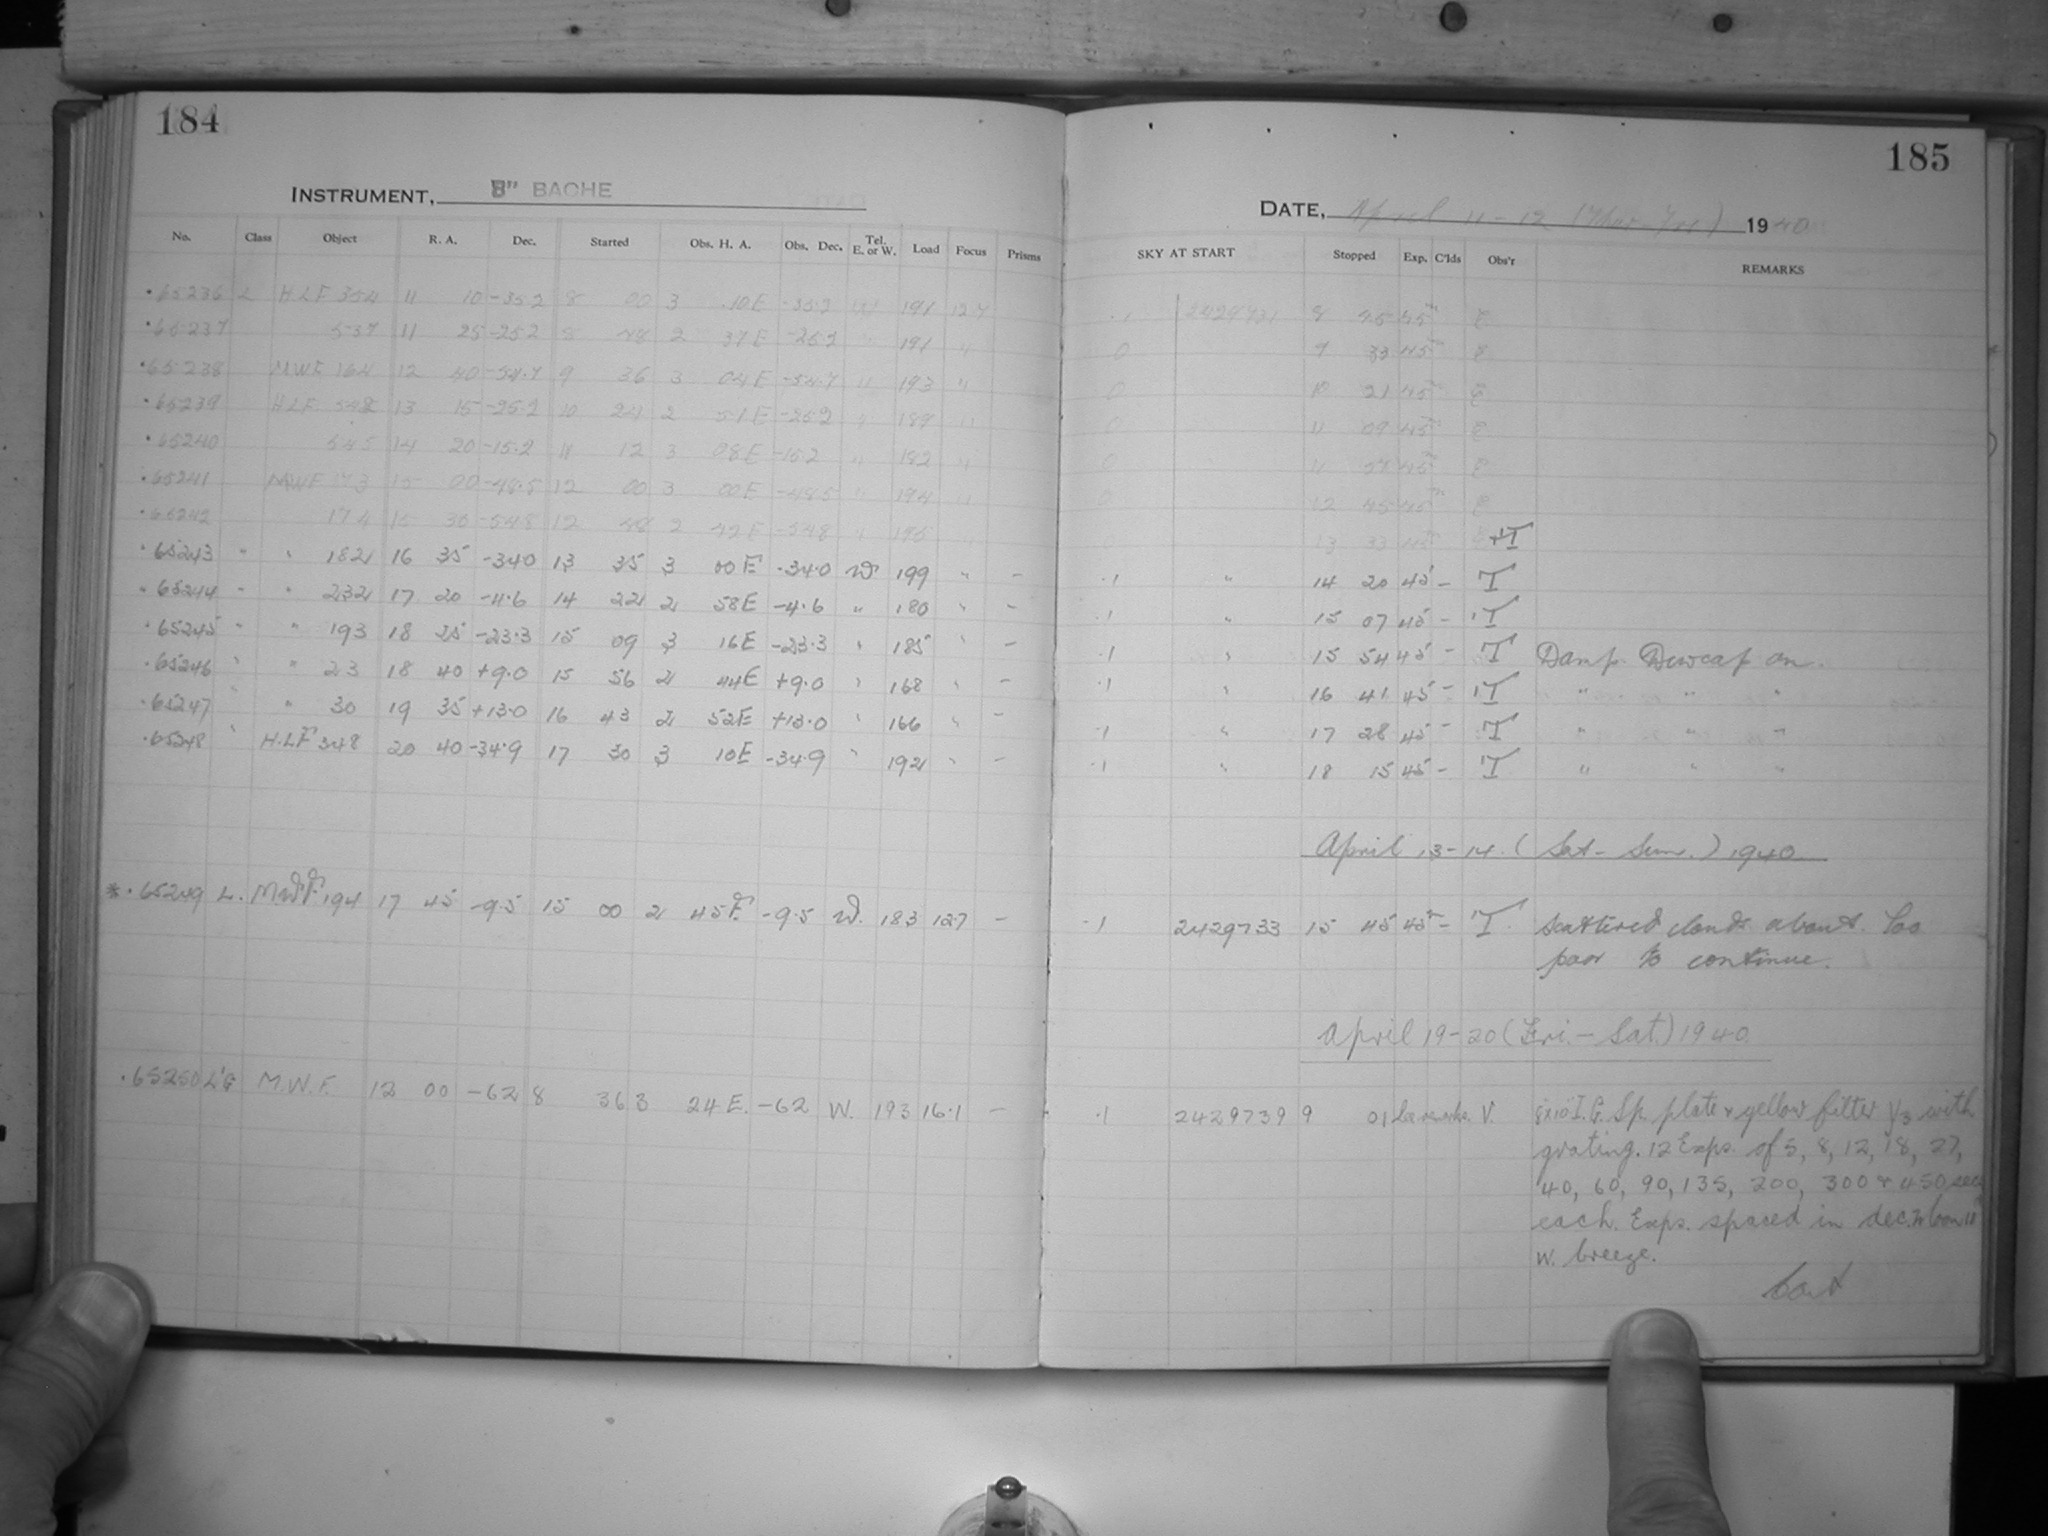 184
INSTRUMENT, 8" BACHE
No. Class Object R. A. Dec. Started Obs. H. A. Obs. Dec. Tel. E. or W. Load Focus Prisms
·65236 L H.L.F. 354 11 10 -35.2 8 00 3 10E -35.2 W 191 12.7
·65237 537 11 25 -25.2 8 48 2 37E -25.2 " 191 "
·65238 M.W.F. 164 12 40 -54.7 9 36 3 04E -54.7 " 193 "
·65239 H.L.F. 13 15 -25.2 10 24 2 51E -25.2 " 189 "
·65240 545 14 20 -15.2 11 12 3 08E -15.2 " 182 "
·65241 M.W.F. 173 15 00 -48.5 12 00 3 00E -48.5 " 194 "
·65242 174 15 30 -54.8 12 48 2 42E -54.8 " 195 "
·65243 " " 182 16 35 -34.0 13 35 3 00E -34.0 W. 199 " –
·65244 " " 232 17 20 -4.6 14 22 2 58E -4.6 " 180 " –
·65245 " " 193 18 25 -23.3 15 09 3 16E -23.3 " 185 " –
·65246 " " 23 18 40 +9.0 15 56 2 44E +9.0 " 168 " –
·65247 " " 30 19 35 +13.0 16 43 2 52E +13.0 " 166 " –
·65248 " H.L.F 348 20 40 -34.9 17 30 3 10E -34.9 " 192 " –
*·65249 L. M.W.F. 194 17 45 -9.5 15 00 2 45E. -9.5 W. 183 12.7 –
·65250 L'G M.W.F. 12 00 -62 8 36 3 24E. -62 W. 193 16.1 –
185
DATE, April 11-12 (Thur-Fri) 1940
SKY AT START Stopped Exp. C'lds Obs'r REMARKS
·1 2429731 8 45 45m E
0 9 33 45m E
0 10 21 45m E
0 11 09 45m E
0 11 57 45m E
0 12 45 45m E
13 33 45 +T
·1 " 14 20 45 – T
·1 " 15 07 45 – T
·1 " 15 54 45 – T Damp. Dewcap on.
·1 " 16 41 45 – T " " "
·1 " 17 28 45 – T " " "
·1 " 18 15 45 – T " " "
April 13-14. (Sat-Sun.) 1940
·1 2429733 15 45 45m – T. Scattered clouds about. Too
poor to continue.
April 19-20 (Fri.-Sat.) 1940
·1 2429739 9 01 See remarks. V. 8x10" I.G. Sp. plate & yellow filter 1/3 with
grating. 12 Exps. of 5, 8, 12, 18, 27,
40, 60, 90, 135, 200, 300 & 450 sec
each. Exps. spaced in dec. Moon 11
W. breeze.